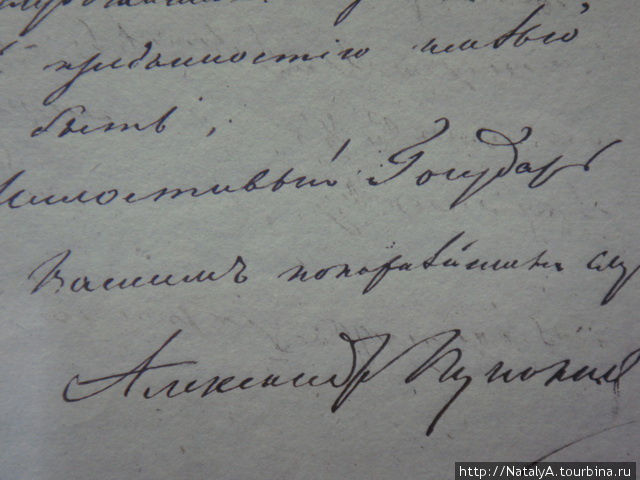 преданностію имѣю
быть,
Милостивый Государь
Вашимъ покорнѣйшимъ слу
Александр
http://NatalyA.tourbina.ru